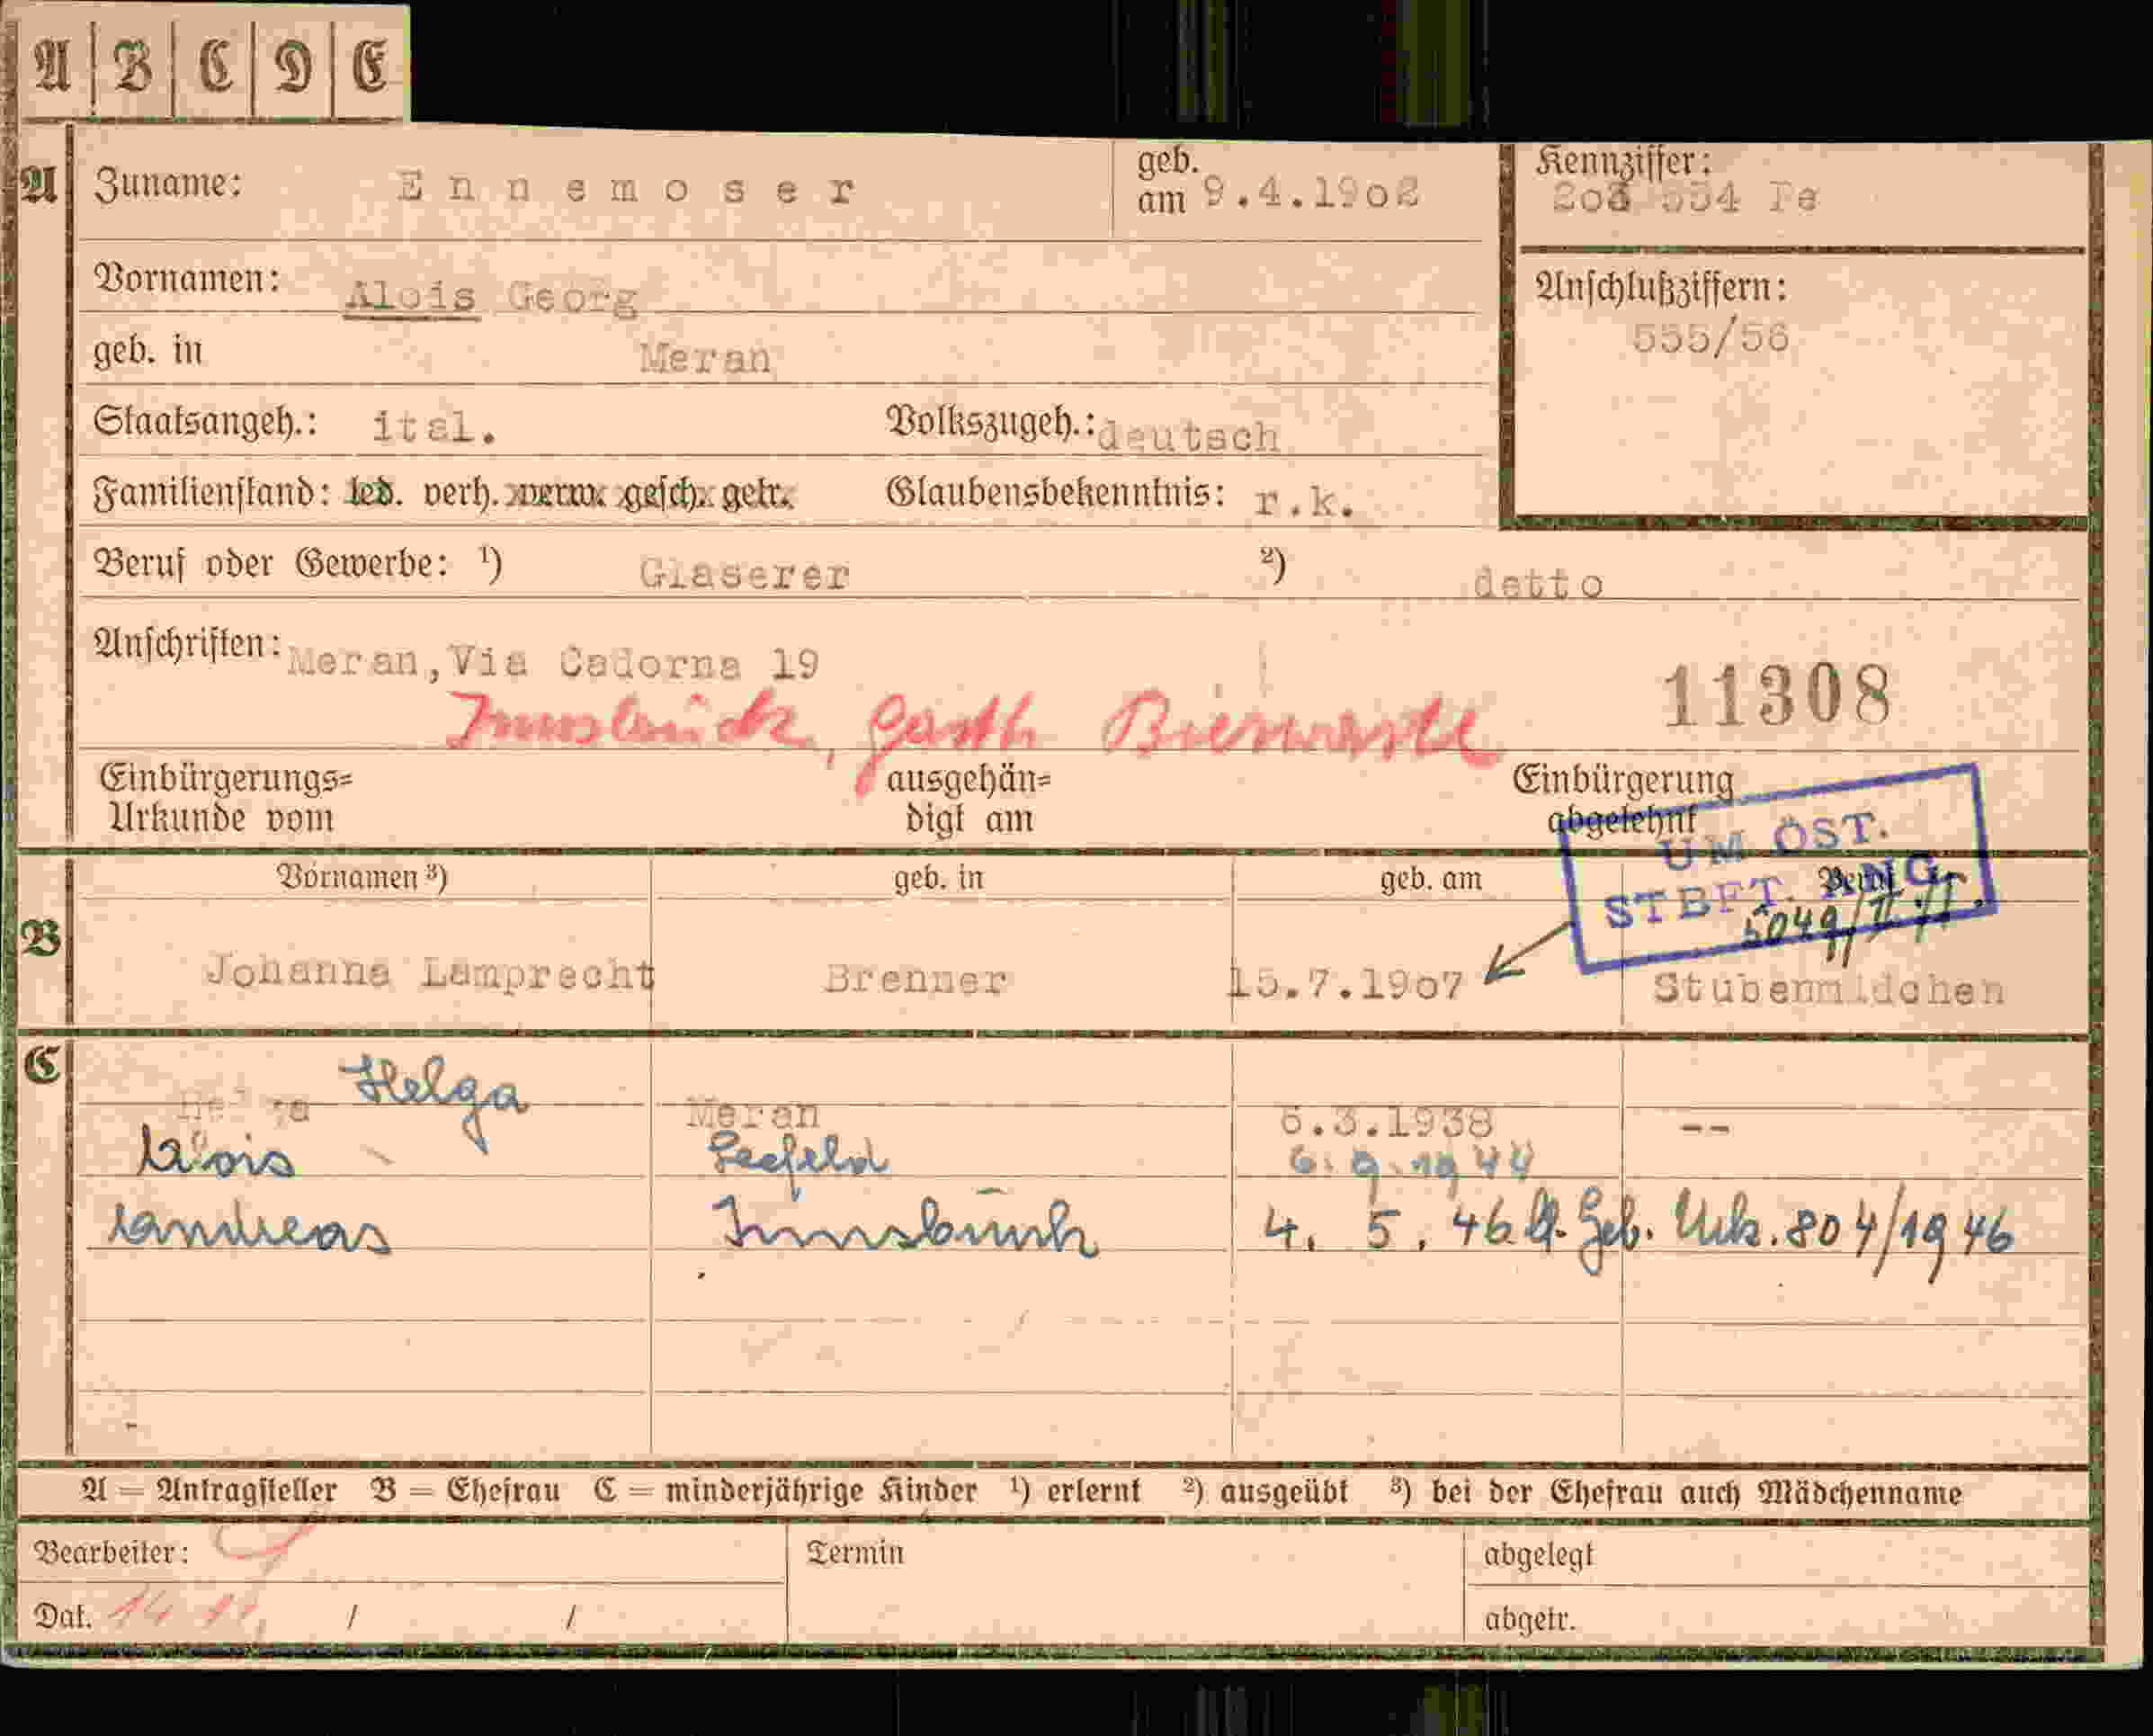 A B C D E
A Zuname: Ennemoser geb. am 9.4.1908 Kennziffer: 203 554 Pe
Vornamen: Alois Georg Anschlußziffern: 555/56
geb. in Meran
Staatsangeh.: ital. Volkszugeh.: deutsch
Familienstand: led. verh. verw. gesch. getr. Glaubensbekenntnis: r.k.
Beruf oder Gewerbe: ¹) Glaserer ²) detto
Anschriften: Meran, Via Cadorna 19
11308
Innsbruck, Gasth Bierwastl
Einbürgerungs= ausgehän= Einbürgerung
Urkunde vom digt am abgelehnt
UM ÖST.
STBFT. ANG.
5049/II
B Vornamen ³) geb. in geb. am Beruf
Johanna Lamprecht Brenner 15.7.1907 Stubenmädchen
C Helga
Helga Meran 6.3.1938 --
Alois Seefeld 6.9.1944
Andreas Innsbruck 4. 5. 46 lt. Geb. Urk. 804/1946
A = Antragsteller B = Ehefrau C = minderjährige Kinder ¹) erlernt ²) ausgeübt ³) bei der Ehefrau auch Mädchenname
Bearbeiter: Termin abgelegt
Dat. 14 11 / / abgetr.